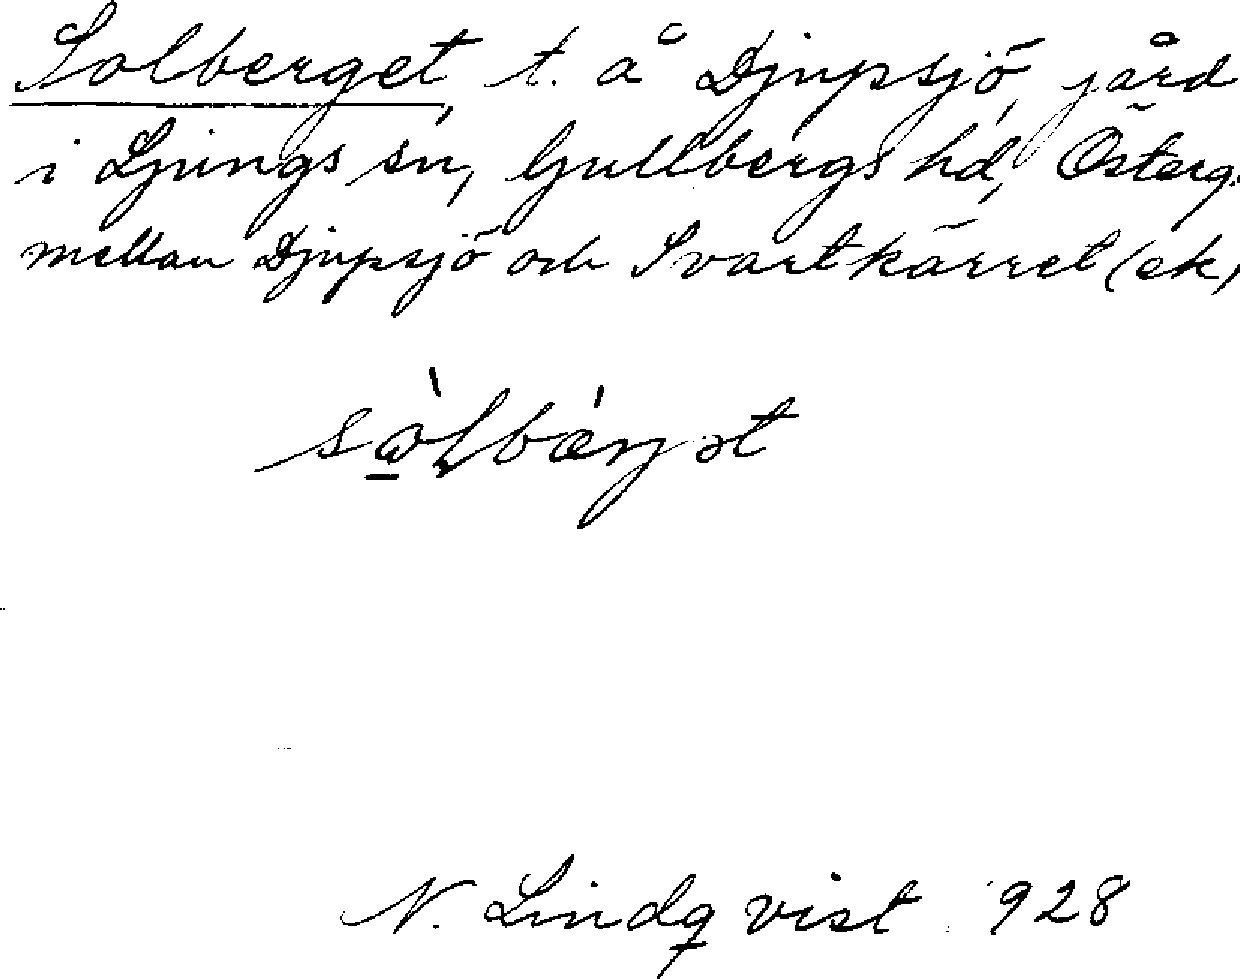 Solberget, t. å Djupsjö, jård
i Ljungs sn, Gullbergs hd, Österg.
mellan Djupsjö och Svartkärret (ek,
N. Lindqvist 928